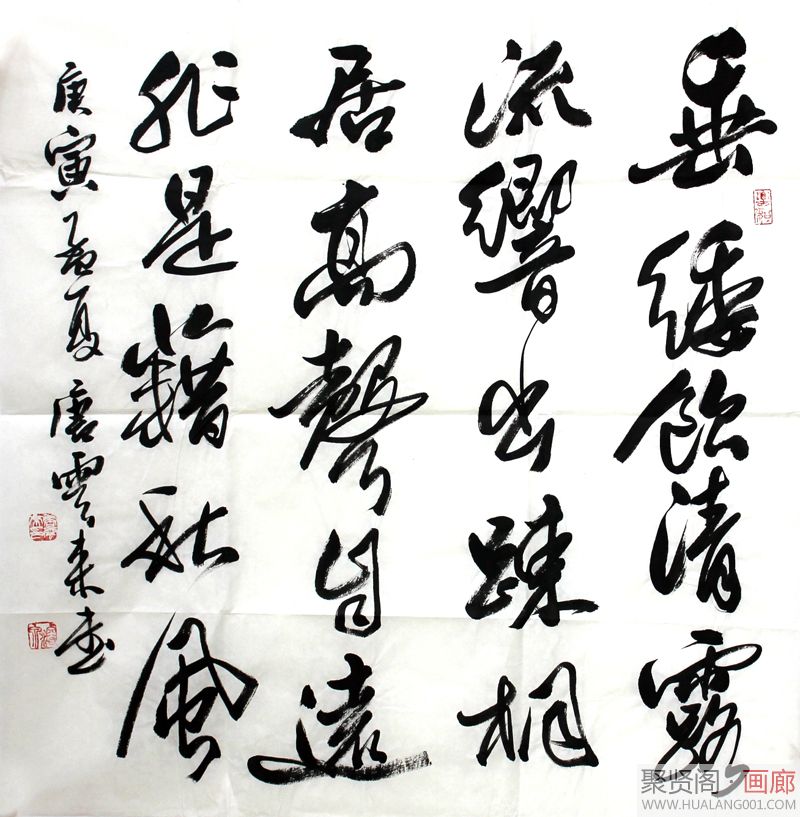 垂緌飲清露
流響出疎桐
居高聲自遠
非是藉秋風
庚寅孟夏唐雲来书
聚贤阁画廊
WWW.HUALANG001.COM